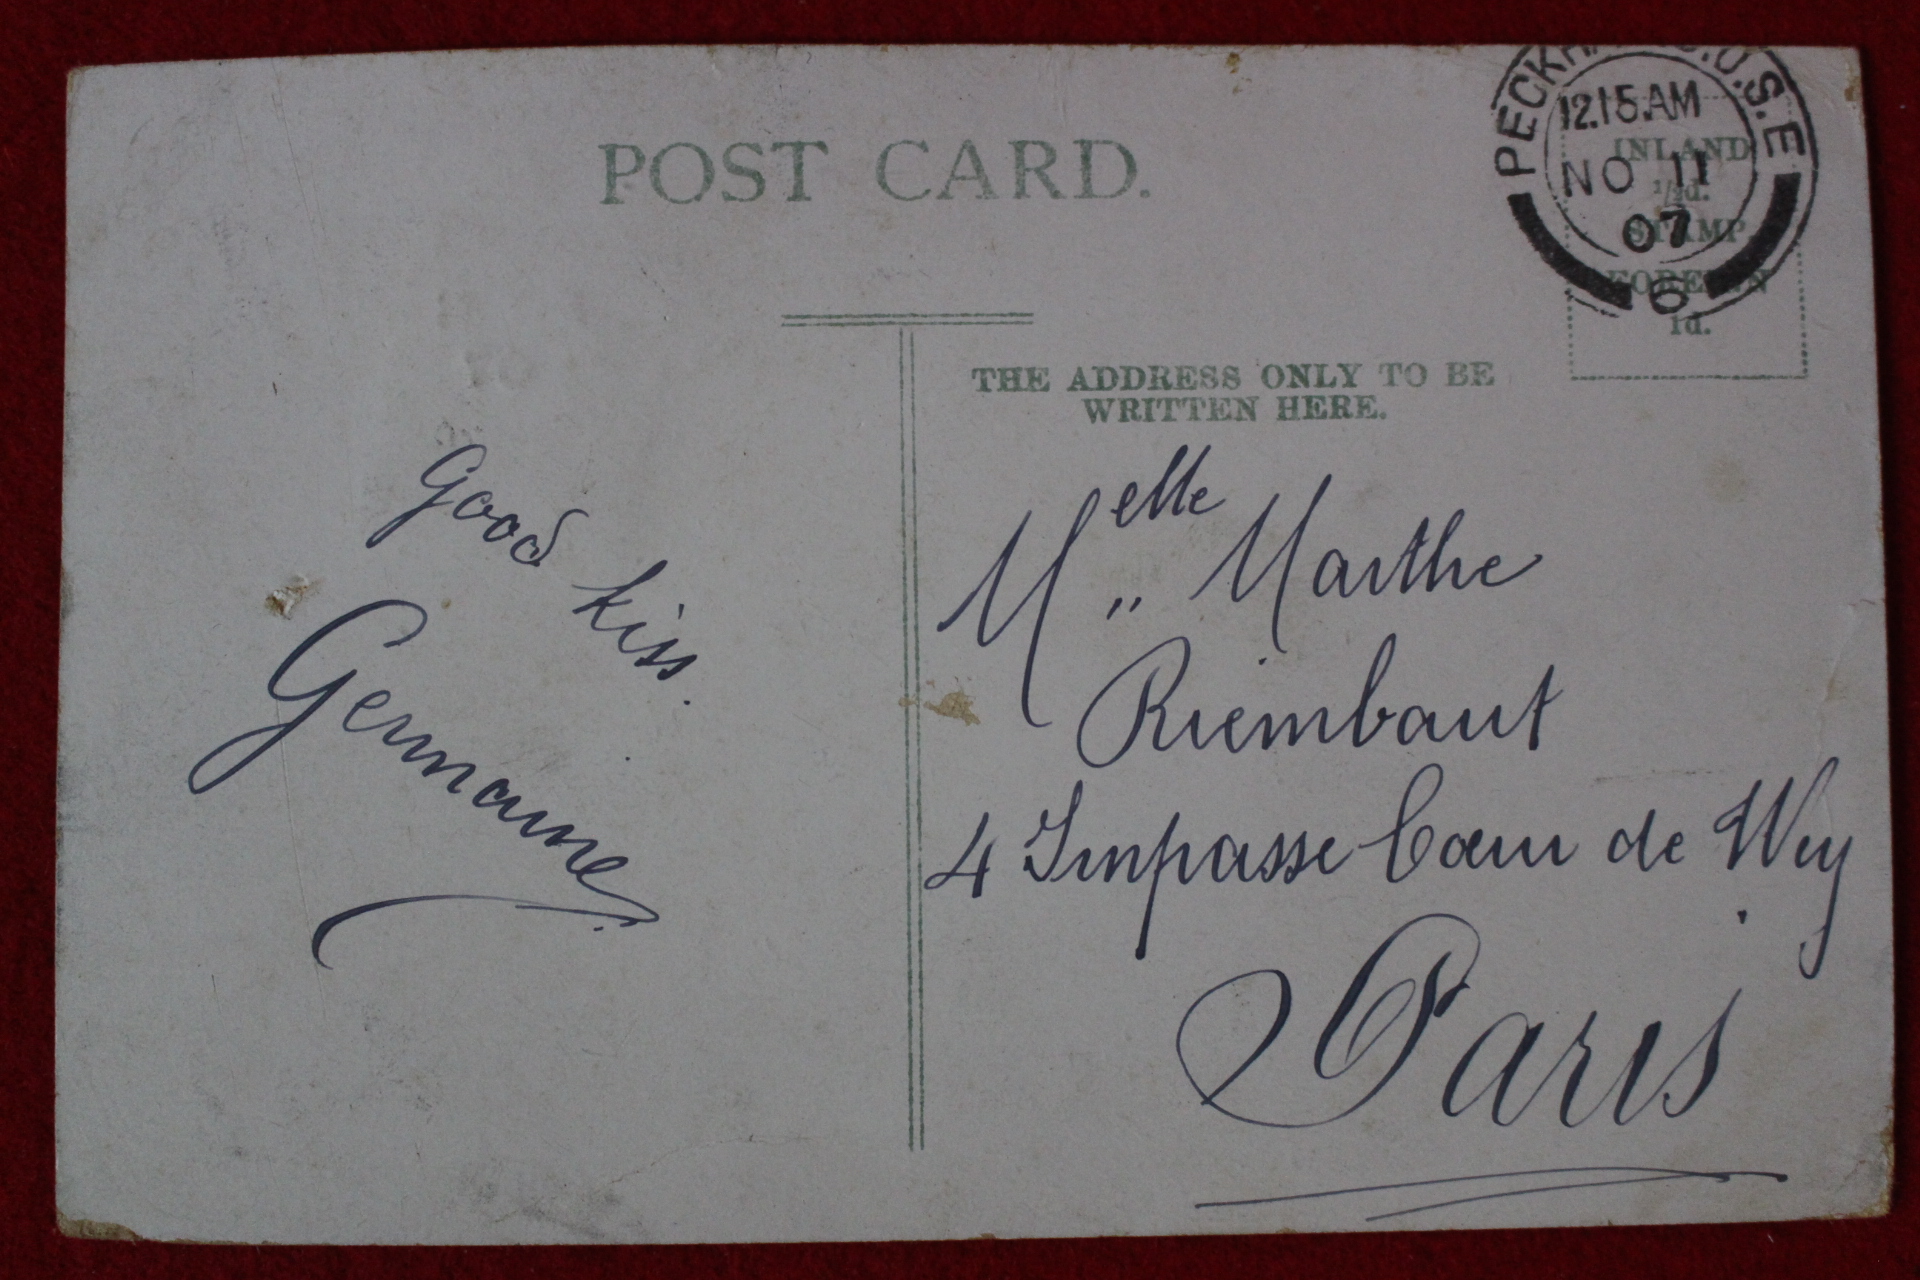 POST CARD.
12.15.AM
NO 11
07
6
S.E
INLAND
½d.
STAMP
FOREIGN
1d.
THE ADDRESS ONLY TO BE
WRITTEN HERE.
Good kiss.
Germaine
Melle Marthe
Riembaut
4 Impasse Cœur de Vey
Paris